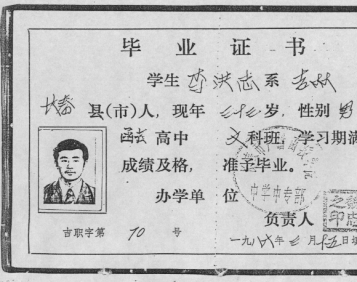 毕业证书
学生 李洪志 系 吉林
长春 县(市)人,现年 岁,性别 男
函式 高中 文科班,学习期满
成绩及格,准予毕业。
办学单位
中学中专部
负责人
吉职字第 70 号
一九八六年 月十五日填